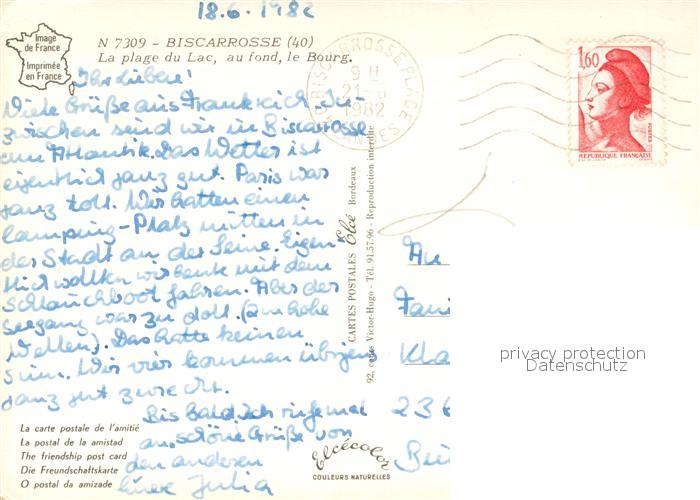 18.6.1982
Image
de France
Imprimée
en France
N 7309 - BISCARROSSE (40)
La plage du Lac, au fond, le Bourg.
Ihr Lieben!
Viele Grüße aus Frankreich. In-
zwischen sind wir in Biscarrosse
am Atlantik. Das Wetter ist
eigentlich ganz gut. Paris war
ganz toll. Wir hatten einen
Camping-Platz mitten in
der Stadt an der Seine. Eigen-
tlich wollten wir heute mit dem
Schlauchboot fahren. Aber der
Seegang war zu doll. (zu hohe
Wellen). Das hatte keinen
Sinn. Wir vier kommen übrigens
ganz gut zurecht.
Bis bald Ich rufe mal
an. schöne Grüße von
den anderen
Eure Julia
La carte postale de l'amitié
La postal de la amistad
The friendship post card
Die Freundschaftskarte
O postal da amizade
CARTES POSTALES Elcé Bordeaux
92, cours Victor-Hugo - Tél. 91.57.96 - Reproduction interdite
Elcécolor
COULEURS NATURELLES
BISCARROSSE PLAGE
9 H
21-6
1982
LANDES
1,60
POSTES
REPUBLIQUE FRANÇAISE
An
Fam
Kla
236
privacy protection
Datenschutz